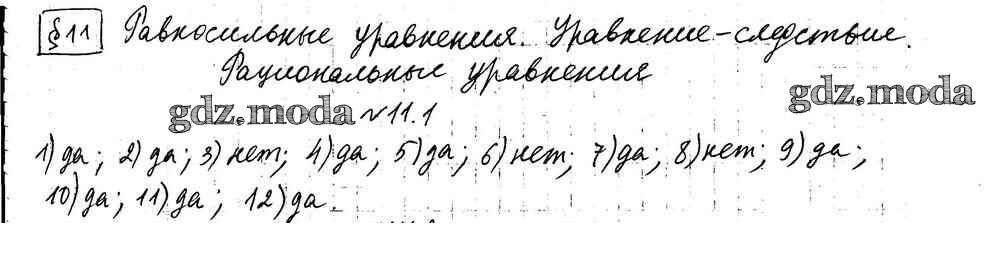 §11 Равносильные уравнения. Уравнение-следствие.
Рациональные уравнения
gdz.moda №11.1 gdz.moda
1) да; 2) да; 3) нет; 4) да; 5) да; 6) нет; 7) да; 8) нет; 9) да;
10) да; 11) да; 12) да.